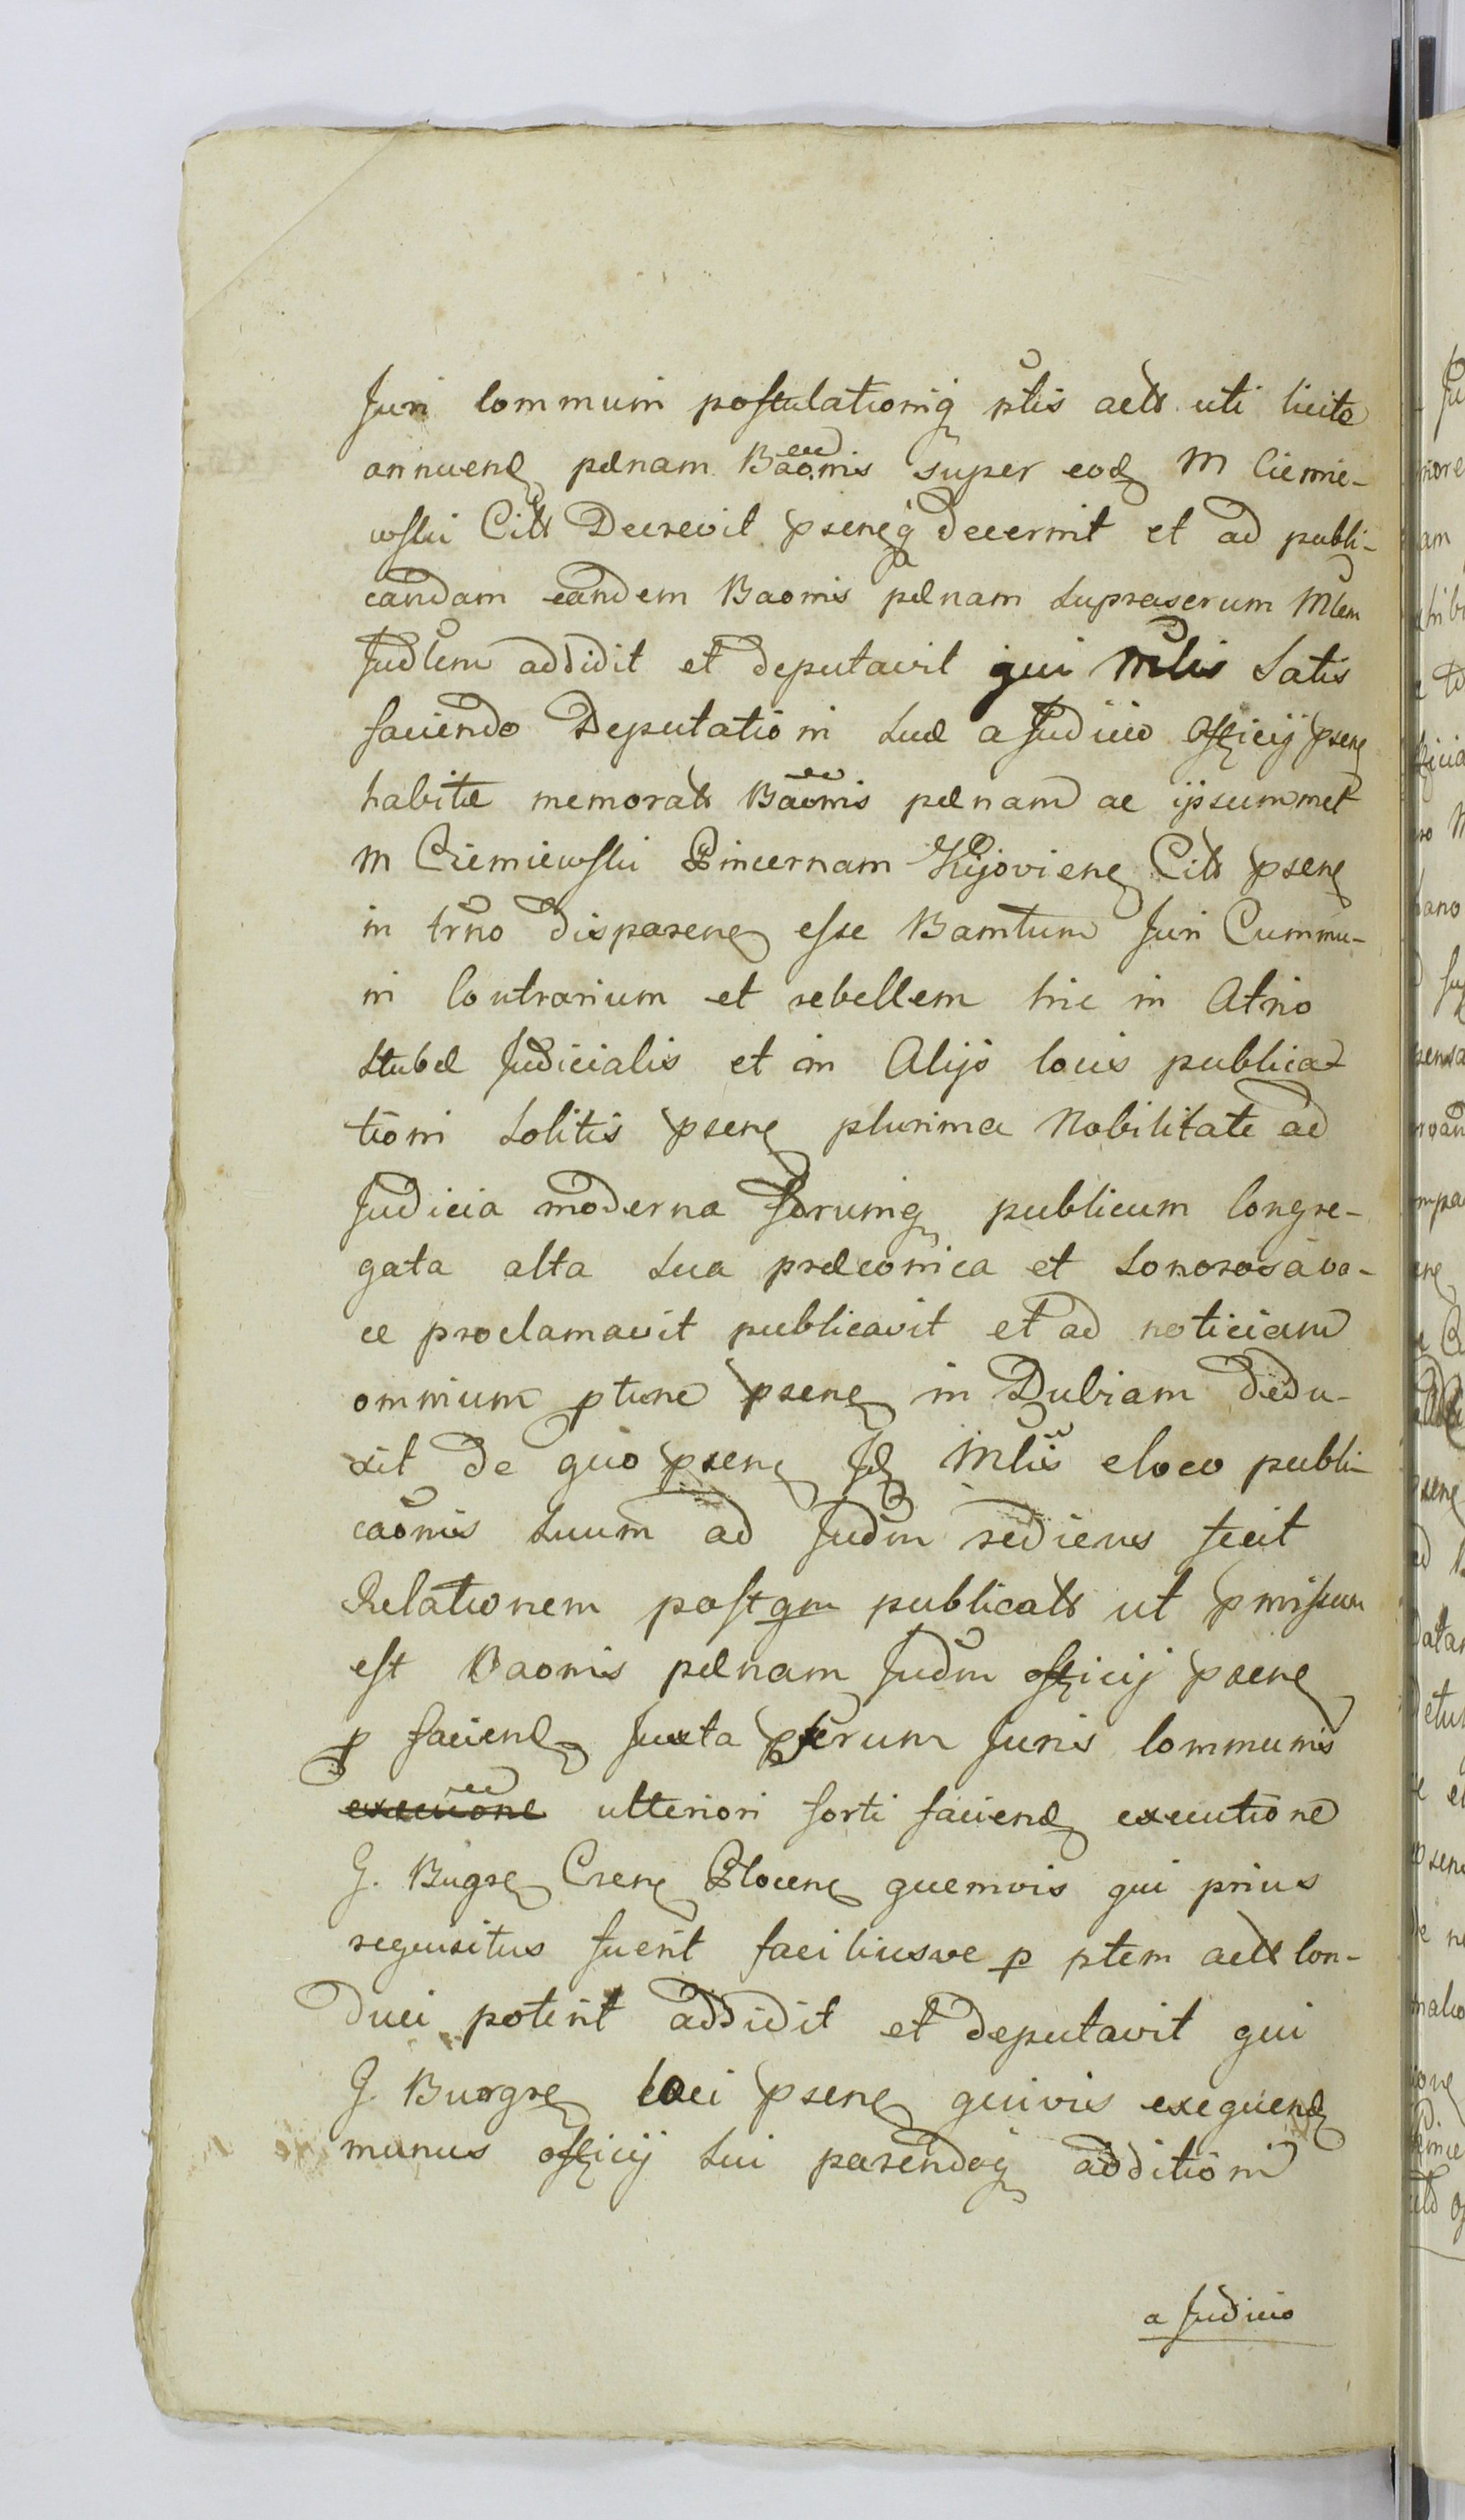 Juri Communi postulationiq ptis actt uti licite
annuend pænam Baōnis super eod M Ciemie-
wski Citt Decrevit psenq decernit et ad publi-
candam eandem Baonis pænam suprascrum Mlem
Judlem addidit et deputavit qui Mlis Satis
faciendo Deputationi suæ a Judicio officij psen
habitæ memoratt Baōnis pænam ac ipsummet
M Ciemiewski Pincernam Kijovien Citt psen
in trno disparen esse Bamtum Juri Commu-
ni Contrarium et rebellem hic in Atrio
Stubæ Judicialis et in Alijs locis publica-
tioni Solitis psen plurima Nobilitate ad
Judicia moderna forumq publicum Congre-
gata alta sua præconica et Sonorosa vo-
ce proclamavit publicavit et ad noticiam
omnium ptunc psen in Dubiam dedu-
xit de quo psen Id Mlis e loco publi-
caōnis suum ad Judm rediens fecit
Relationem postqm publicatt ut pmissum
est Baonis pænam Judm officij psen
p faciend Juxta pscrum Juris Communis
execuōne ulteriori forti faciend executione
G. Bugr Cren Plocen quemvis qui prius
requisitus fuerit faciliusve p ptem actt con-
duci poterit addidit et deputavit qui
G. Burgr loci psen quivis exequend
munus officij sui parendoq additioni
a Judicio